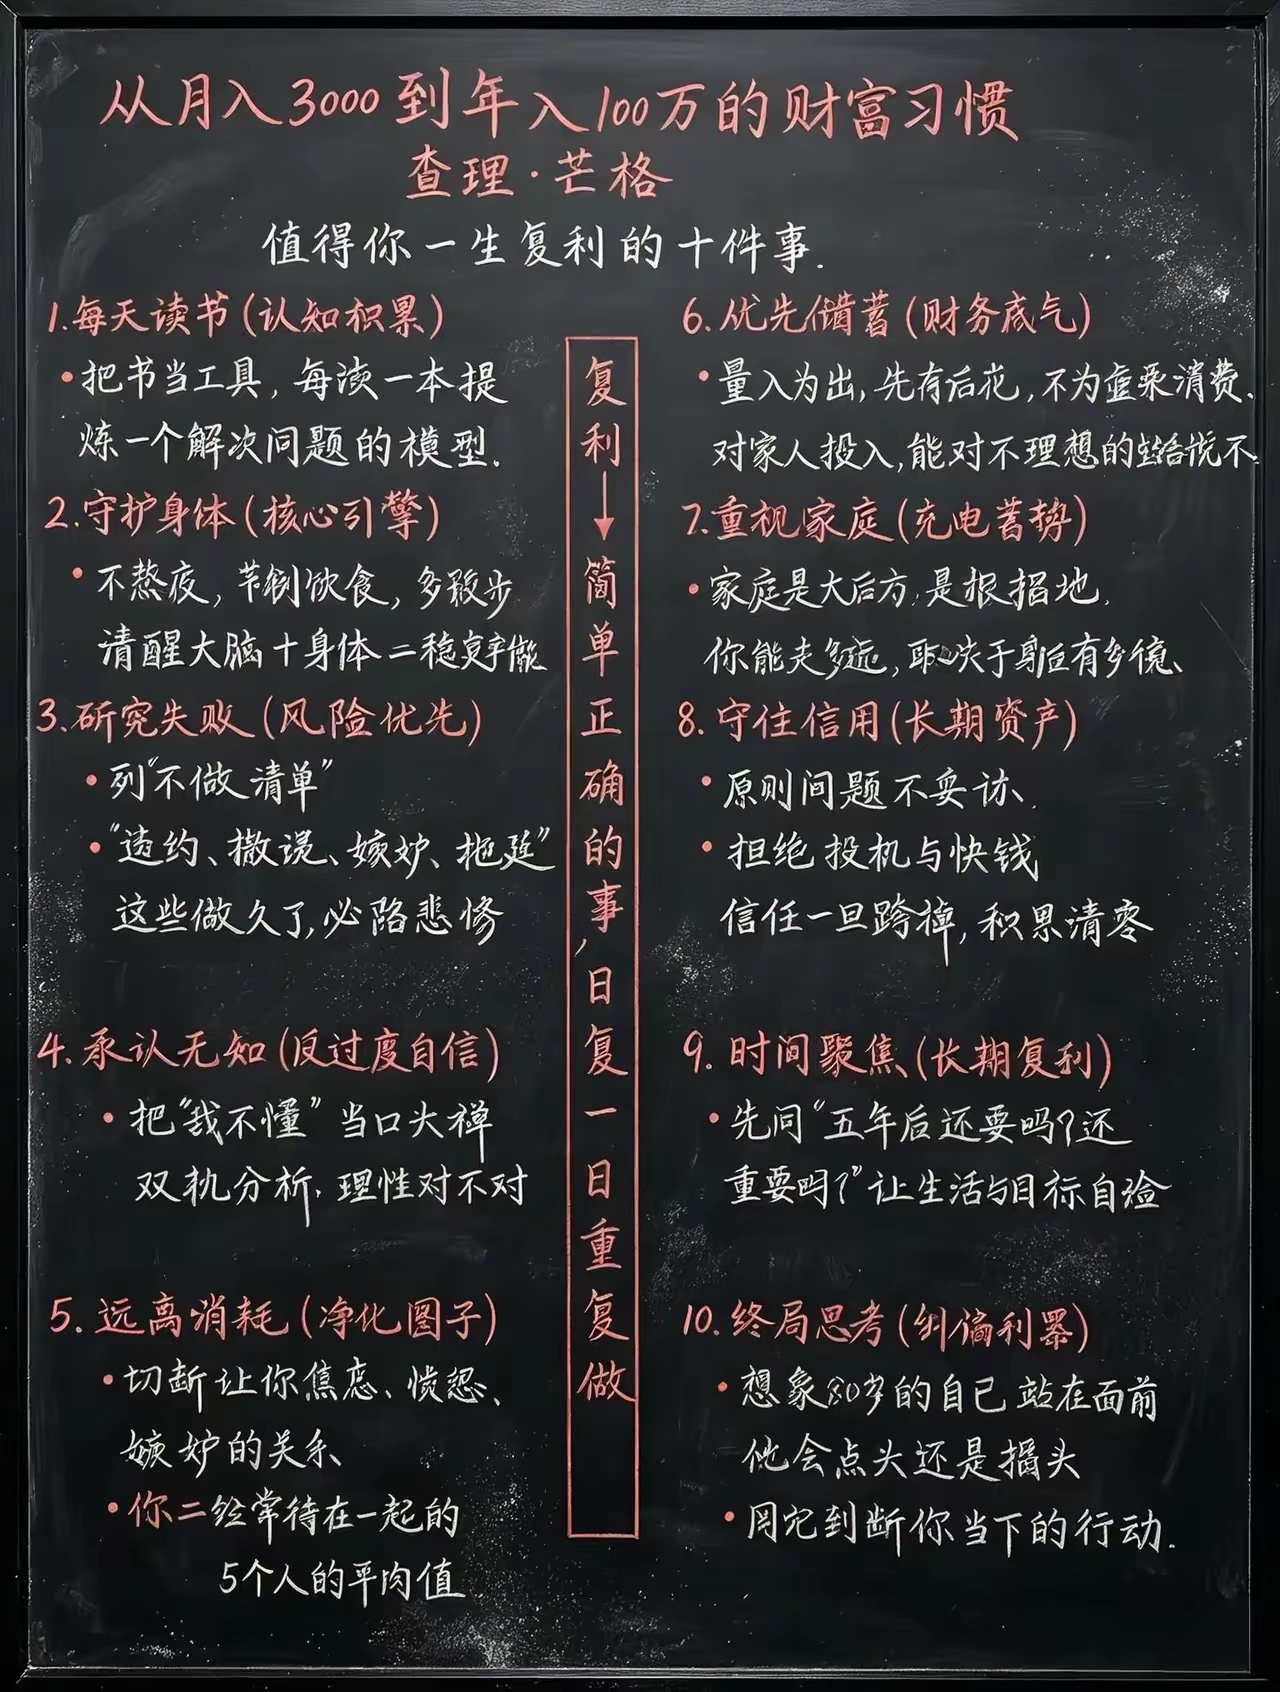 从月入3000到年入100万的财富习惯
查理·芒格
值得你一生复利的十件事.
1.每天读书(认知积累)
•把书当工具,每读一本提
炼一个解决问题的模型.
2.守护身体(核心引擎)
•不熬夜,节制饮食,多散步
清醒大脑十身体二稳定
3.研究失败(风险优先)
•列“不做清单”
•“违约、撒谎、嫉妒、拖延”
这些做久了,必陷悲惨
4.承认无知(反过度自信)
•把“我不懂”当口头禅
双轨分析.理性对不对
5.远离消耗(净化圈子)
•切断让你焦虑、愤怒、
嫉妒的关系
•你二经常待在一起的
5个人的平均值
复利→简单正确的事,日复一日重复做
6.优先储蓄(财务底气)
•量入为出,先存后花,不为虚荣消费.
对家人投入,能对不理想的生活说不.
7.重视家庭(充电蓄势)
•家庭是大后方.是根据地.
你能走多远,取决于身后有多
8.守住信用(长期资产)
•原则问题不妥协、
•拒绝投机与快钱
信任一旦跨掉,积累清零
9.时间聚焦(长期复利)
•先问“五年后还要吗?还
重要吗?”让生活与目标自验
10.终局思考(纠偏利器)
•想象80岁的自己站在面前
他会点头还是摇头
•用它判断你当下的行动.